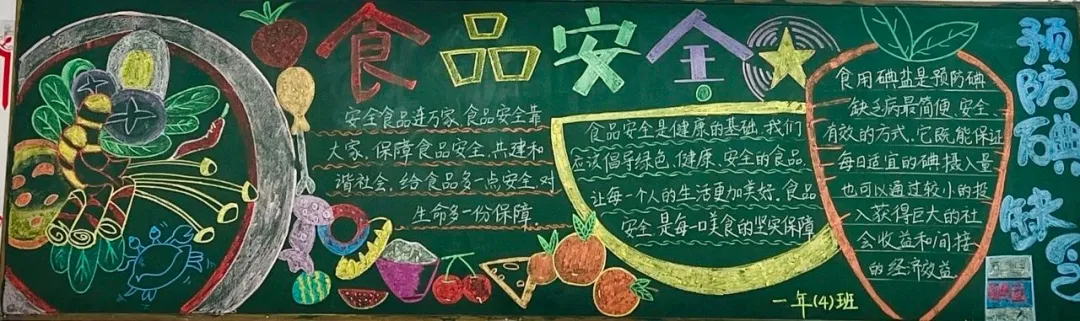 食品安全
安全食品进万家,食品安全靠
大家。保障食品安全,共建和
谐社会,给食品多一点安全,对
生命多一份保障。
食品安全是健康的基础,我们
应该倡导绿色、健康、安全的食品,
让每一个人的生活更加美好。食品
安全是每一口美食的坚实保障
食用碘盐是预防碘
缺乏病最简便、安全、
有效的方式。它既能保证
每日适宜的碘摄入量
也可以通过较小的投
入获得巨大的社
会收益和间接
的经济效益
预防碘缺乏
一年(4)班